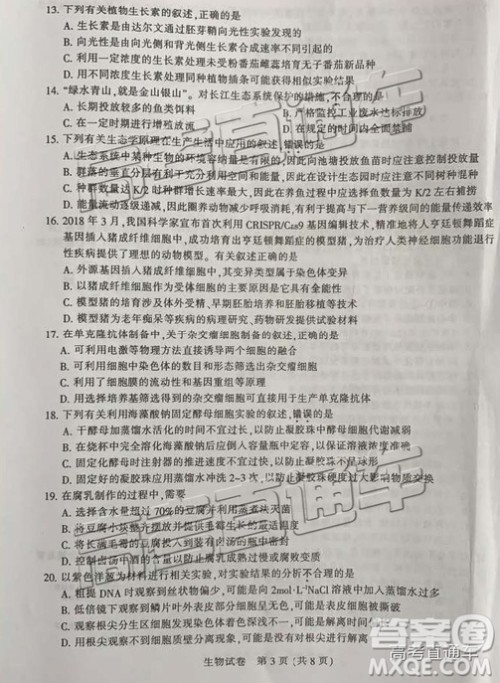 13. 下列有关植物生长素的叙述,正确的是
A. 生长素是由达尔文通过胚芽鞘向光性实验发现的
B. 向光性是由向光侧和背光侧生长素合成速率不同引起的
C. 利用一定浓度的生长素处理受粉番茄雌蕊培育无子番茄新品种
D. 用不同浓度生长素处理同种植物插条可能使获得相似实验结果
14. “绿水青山,就是金山银山”。对长江生态系统保护的措施,不合理的是
A. 长期投放较多的鱼类饵料 B. 严格监控工业废水达标排放
C. 在一定时期进行增殖放流 D. 在规定的时间内全面禁捕
15. 下列有关生态学原理在生产生活中应用的叙述,错误的是
A. 生态系统中某种生物的环境容纳量是有限的,因此向池塘投放鱼苗时应注意控制投放量
B. 群落的垂直分层有利于充分利用空间和能量,因此在设计生态园时应注意不同植物的搭配
C. 种群数量达 K/2 时种群增长速率最大,因此在养鱼过程中应选择鱼数量为 K/2 左右捕捞
D. 能量流动逐级递减,因此圈养动物减少呼吸消耗,有利于提高与下一营养级间的能量传递效率
16. 2018 年 3 月,我国科学家宣布首次利用 CRISPR/Cas9 基因编辑技术,精准地将人亨廷顿舞蹈症
基因插入猪成纤维细胞中,成功培育出亨廷顿舞蹈症的模型猪,为治疗人类神经细胞功能退行
性疾病提供了理想的动物模型。有关叙述正确的是
A. 外源基因插入猪成纤维细胞中,其变异类型属于染色体变异
B. 以猪成纤维细胞作为受体细胞的主要原因是其全能性高
C. 模型猪的培育涉及体外受精、早期胚胎培养和胚胎移植等技术
D. 模型猪可为老年痴呆等疾病的病理研究、药物研发提供试验材料
17. 在单克隆抗体制备中,关于杂交瘤细胞制备的叙述,正确的是
A. 可利用电激等物理方法直接诱导两个细胞的融合
B. 可利用细胞中染色体的数目和形态筛选出杂交瘤细胞
C. 利用了细胞膜的流动性和基因重组等原理
D. 用选择培养基筛选到的杂交瘤细胞可直接用于生产单克隆抗体
18. 下列有关利用海藻酸钠固定酵母细胞实验的叙述,错误的是
A. 干酵母加蒸馏水活化的时间不宜过长,以防止酵母细胞代谢减弱
B. 在烧杯中完全溶化海藻酸钠后应倒入容量瓶中定容,以保证浓度准确
C. 固定化酵母时注射器的推进速度不宜过快,以防止凝胶珠中酵母细胞过少
D. 固定好的凝胶珠应用蒸馏水冲洗 2~3 次,以防止凝胶珠硬度过大影响物质交换
19. 在腐乳制作的过程中,需要
A. 选择含水量超过 70%的豆腐并利用蒸煮法灭菌
B. 将豆腐小块整齐摆放并提供毛霉生长的最适温度
C. 将长满毛霉的豆腐与盐分层
D. 控制卤汤中酒的含量以防止腐乳成熟过慢或腐败变质
20. 以紫色洋葱为材料进行相关实验,对实验结果的分析不合理的是
A. 粗提 DNA 时未观察到丝状物,可能是向 2mol·L⁻¹NaCl 溶液中加入蒸馏水过多
B. 低倍镜下未观察到鳞片叶外表皮部分细胞呈现紫色,可能是撕取的表皮过薄
C. 显微镜下观察到的根尖细胞多层重叠,可能是没有对根尖进行解离
D. 用质量分数较大的蔗糖溶液未观察到质壁分离现象,可能是没有对根尖进行解离
生物试卷 第 3 页 (共 8 页)
高考直通车
答案圈
MXQE.COM